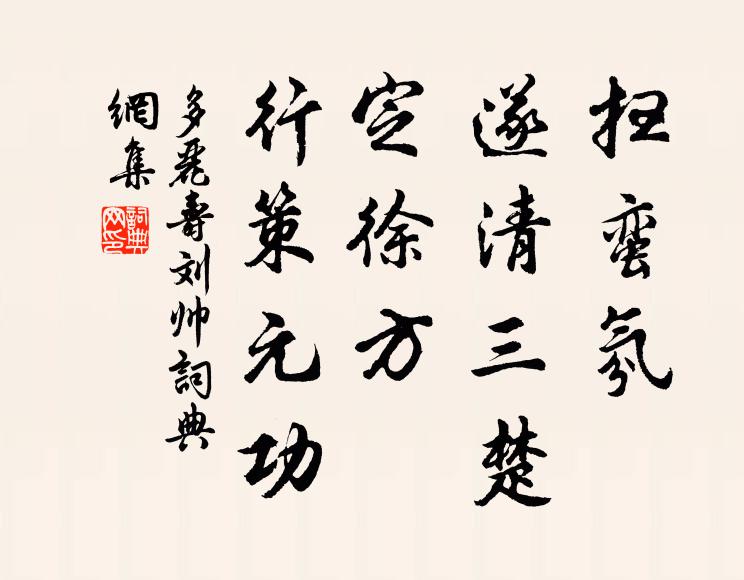 扫蛮氛
遂清三楚
定徐方
行策元功
多麗壽刘帅詞典
網集
詞典
网印